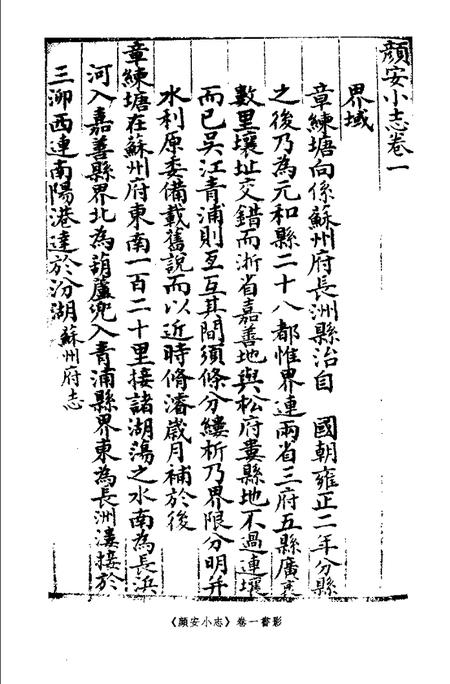 顏安小志卷一
界域
章練塘向係蘇州府長洲縣治自 國朝雍正二年分縣
之後乃為元和縣二十八都惟界連兩省三府五縣廣袤
數里壤址交錯而浙省嘉善地與松府婁縣地不過連壤
而已吳江青浦則互互其間須條分縷析乃界限分明并
水利原委備載舊說而以近時脩濬歲月補於後
章練塘在蘇州府東南一百二十里接諸湖蕩之水南為長浜
河入嘉善縣界北為葫蘆兜入青浦縣界東為長洲漊接於
三泖西連南陽港達於汾湖蘇州府志
《顏安小志》卷一書影